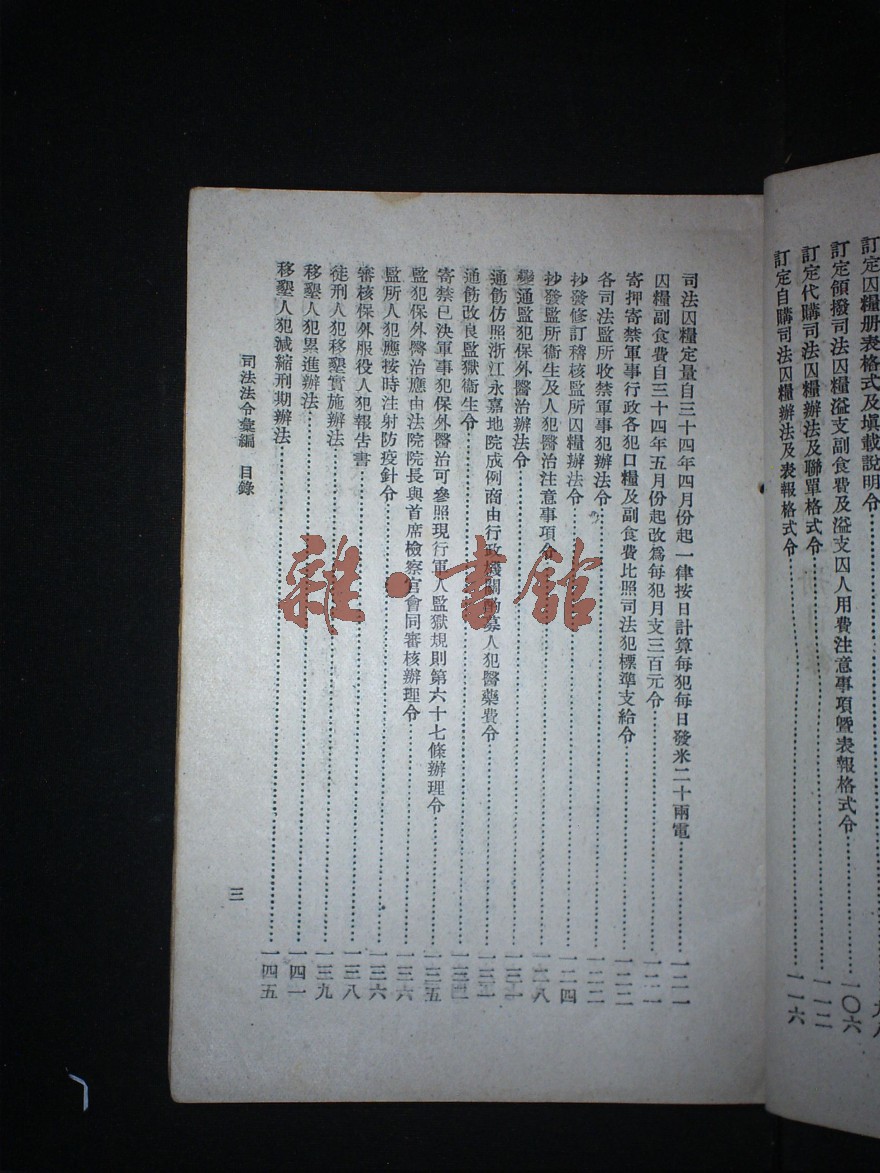 訂定囚糧册表格式及塡載說明令……九八
訂定領撥司法囚糧溢支副食費及溢支囚人用費注意事項暨表報格式令……一〇六
訂定代購司法囚糧辦法及聯單格式令……一一二
訂定自購司法囚糧辦法及表報格式令……一一六
司法囚糧定量自三十四年四月份起一律按日計算每犯每日發米二十兩電……一二一
囚糧副食費自三十四年五月份起改爲每犯月支三百元令……一二一
寄押寄禁軍事行政各犯口糧及副食費比照司法犯標準支給令……一二二
各司法監所收禁軍事犯辦法令……一二二
抄發修訂稽核監所囚糧辦法令……一二四
抄發監所衞生及人犯醫治注意事項令……一二八
變通監犯保外醫治辦法令……一三一
通飭仿照浙江永嘉地院成例商由行政機關酌募人犯醫藥費令……一三一
通飭改良監獄衞生令
寄禁已決軍事犯保外醫治可參照現行軍人監獄規則第六十七條辦理令……一三五
監犯保外醫治應由法院院長與首席檢察官會同審核辦理令……一三六
監所人犯應按時注射防疫針令……一三六
審核保外服役人犯報告書……一三八
徒刑人犯移墾實施辦法……一三九
移墾人犯累進辦法……一四一
移墾人犯減縮刑期辦法……一四五
司法法令彙編 目錄
三
雜·書館